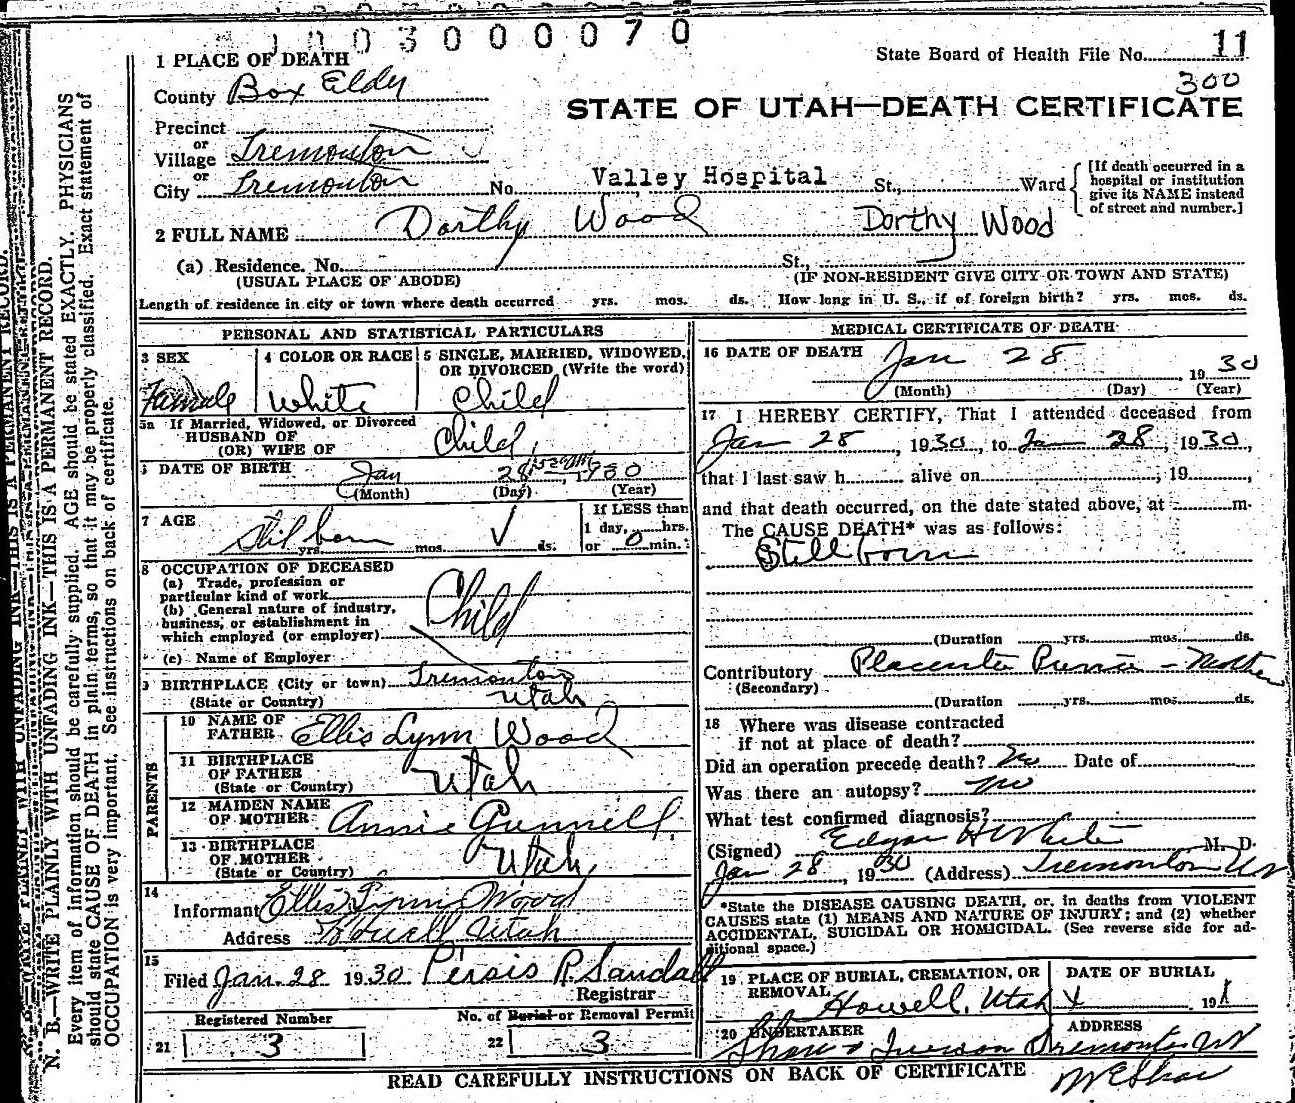 1003000070
1 PLACE OF DEATH
State Board of Health File No. 11
300
County Box Elder
STATE OF UTAH—DEATH CERTIFICATE
Precinct
or
Village Tremonton
or
City Tremonton No. Valley Hospital St., Ward
[If death occurred in a
hospital or institution
give its NAME instead
of street and number.]
2 FULL NAME Dorthy Wood Dorthy Wood
(a) Residence. No. St.,
(USUAL PLACE OF ABODE) (IF NON-RESIDENT GIVE CITY OR TOWN AND STATE)
Length of residence in city or town where death occurred yrs. mos. ds. How long in U. S., if of foreign birth? yrs. mos. ds.
PERSONAL AND STATISTICAL PARTICULARS
3 SEX 4 COLOR OR RACE 5 SINGLE, MARRIED, WIDOWED,
OR DIVORCED (Write the word)
Female White Child
5a If Married, Widowed, or Divorced
HUSBAND OF
(OR) WIFE OF Child
6 DATE OF BIRTH Jan 28 1930
(Month) (Day) (Year)
7 AGE Stillborn
yrs. mos. ds.
If LESS than
1 day, hrs.
or 0 min.
8 OCCUPATION OF DECEASED
(a) Trade, profession or
particular kind of work
(b) General nature of industry,
business, or establishment in
which employed (or employer)
Child
(c) Name of Employer
9 BIRTHPLACE (City or town) Tremonton
(State or Country) Utah
PARENTS
10 NAME OF
FATHER Ellis Lynn Wood
11 BIRTHPLACE
OF FATHER
(State or Country) Utah
12 MAIDEN NAME
OF MOTHER Annie Gunnell
13 BIRTHPLACE
OF MOTHER
(State or Country) Utah
14
Informant Ellis Lynn Wood
Address Howell Utah
15
Filed Jan. 28 1930 Persis R. Sandall
Registrar
Registered Number No. of Burial or Removal Permit
21 3 22 3
MEDICAL CERTIFICATE OF DEATH
16 DATE OF DEATH Jan 28 1930
(Month) (Day) (Year)
17 I HEREBY CERTIFY, That I attended deceased from
Jan 28, 1930, to Jan 28, 1930,
that I last saw h alive on , 19 ,
and that death occurred, on the date stated above, at m.
The CAUSE DEATH* was as follows:
Stillborn
(Duration yrs. mos. ds.
Contributory Placenta Previa - Mother
(Secondary)
(Duration yrs. mos. ds.
18 Where was disease contracted
if not at place of death?
Did an operation precede death? No Date of
Was there an autopsy? No
What test confirmed diagnosis?
(Signed) Edgar H White M. D.
Jan 28, 1930 (Address) Tremonton Ut
*State the DISEASE CAUSING DEATH, or, in deaths from VIOLENT
CAUSES state (1) MEANS AND NATURE OF INJURY; and (2) whether
ACCIDENTAL, SUICIDAL OR HOMICIDAL. (See reverse side for ad-
ditional space.)
19 PLACE OF BURIAL, CREMATION, OR
REMOVAL Howell, Utah
DATE OF BURIAL
X 19X
20 UNDERTAKER ADDRESS
Shaw & Iverson Tremonton Ut
W E Shaw
READ CAREFULLY INSTRUCTIONS ON BACK OF CERTIFICATE
N. B.—WRITE PLAINLY WITH UNFADING INK—THIS IS A PERMANENT RECORD.
Every item of information should be carefully supplied. AGE should be stated EXACTLY. PHYSICIANS
should state CAUSE OF DEATH in plain terms, so that it may be properly classified. Exact statement of
OCCUPATION is very important. See instructions on back of certificate.